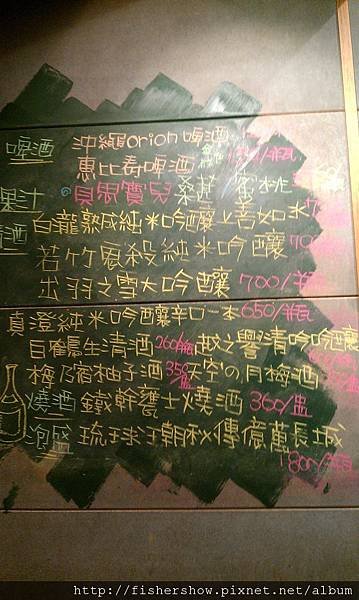 啤酒 沖繩orion啤酒
惠比壽啤酒
果汁 貝果寶兒 桑葚 蜜桃
清酒 白龍熟成純米吟釀上善如水
若竹鬼殺純米吟釀
出羽之雪大吟釀 700/瓶
真澄純米吟釀辛口一本 650/瓶
白鶴生清酒 260/瓶 越之譽清吟吟釀
梅乃宿柚子酒 350/盅 天空の月梅酒
燒酒 鐵幹甕士燒酒 360/盅
泡盛 琉球王朝秋傳億萬長城
1800/瓶
http://fishershow.pixnet.net/album